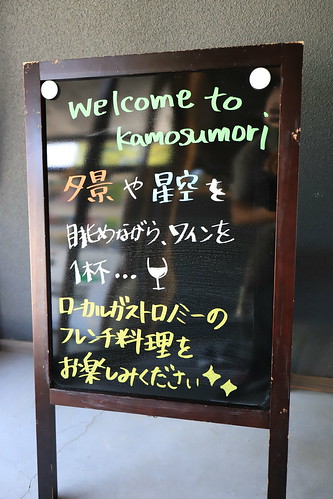 welcome to
kamosumori
夕景や星空を
眺めながら、ワインを
1杯...
ローカルガストロノミーの
フレンチ料理を
お楽しみください